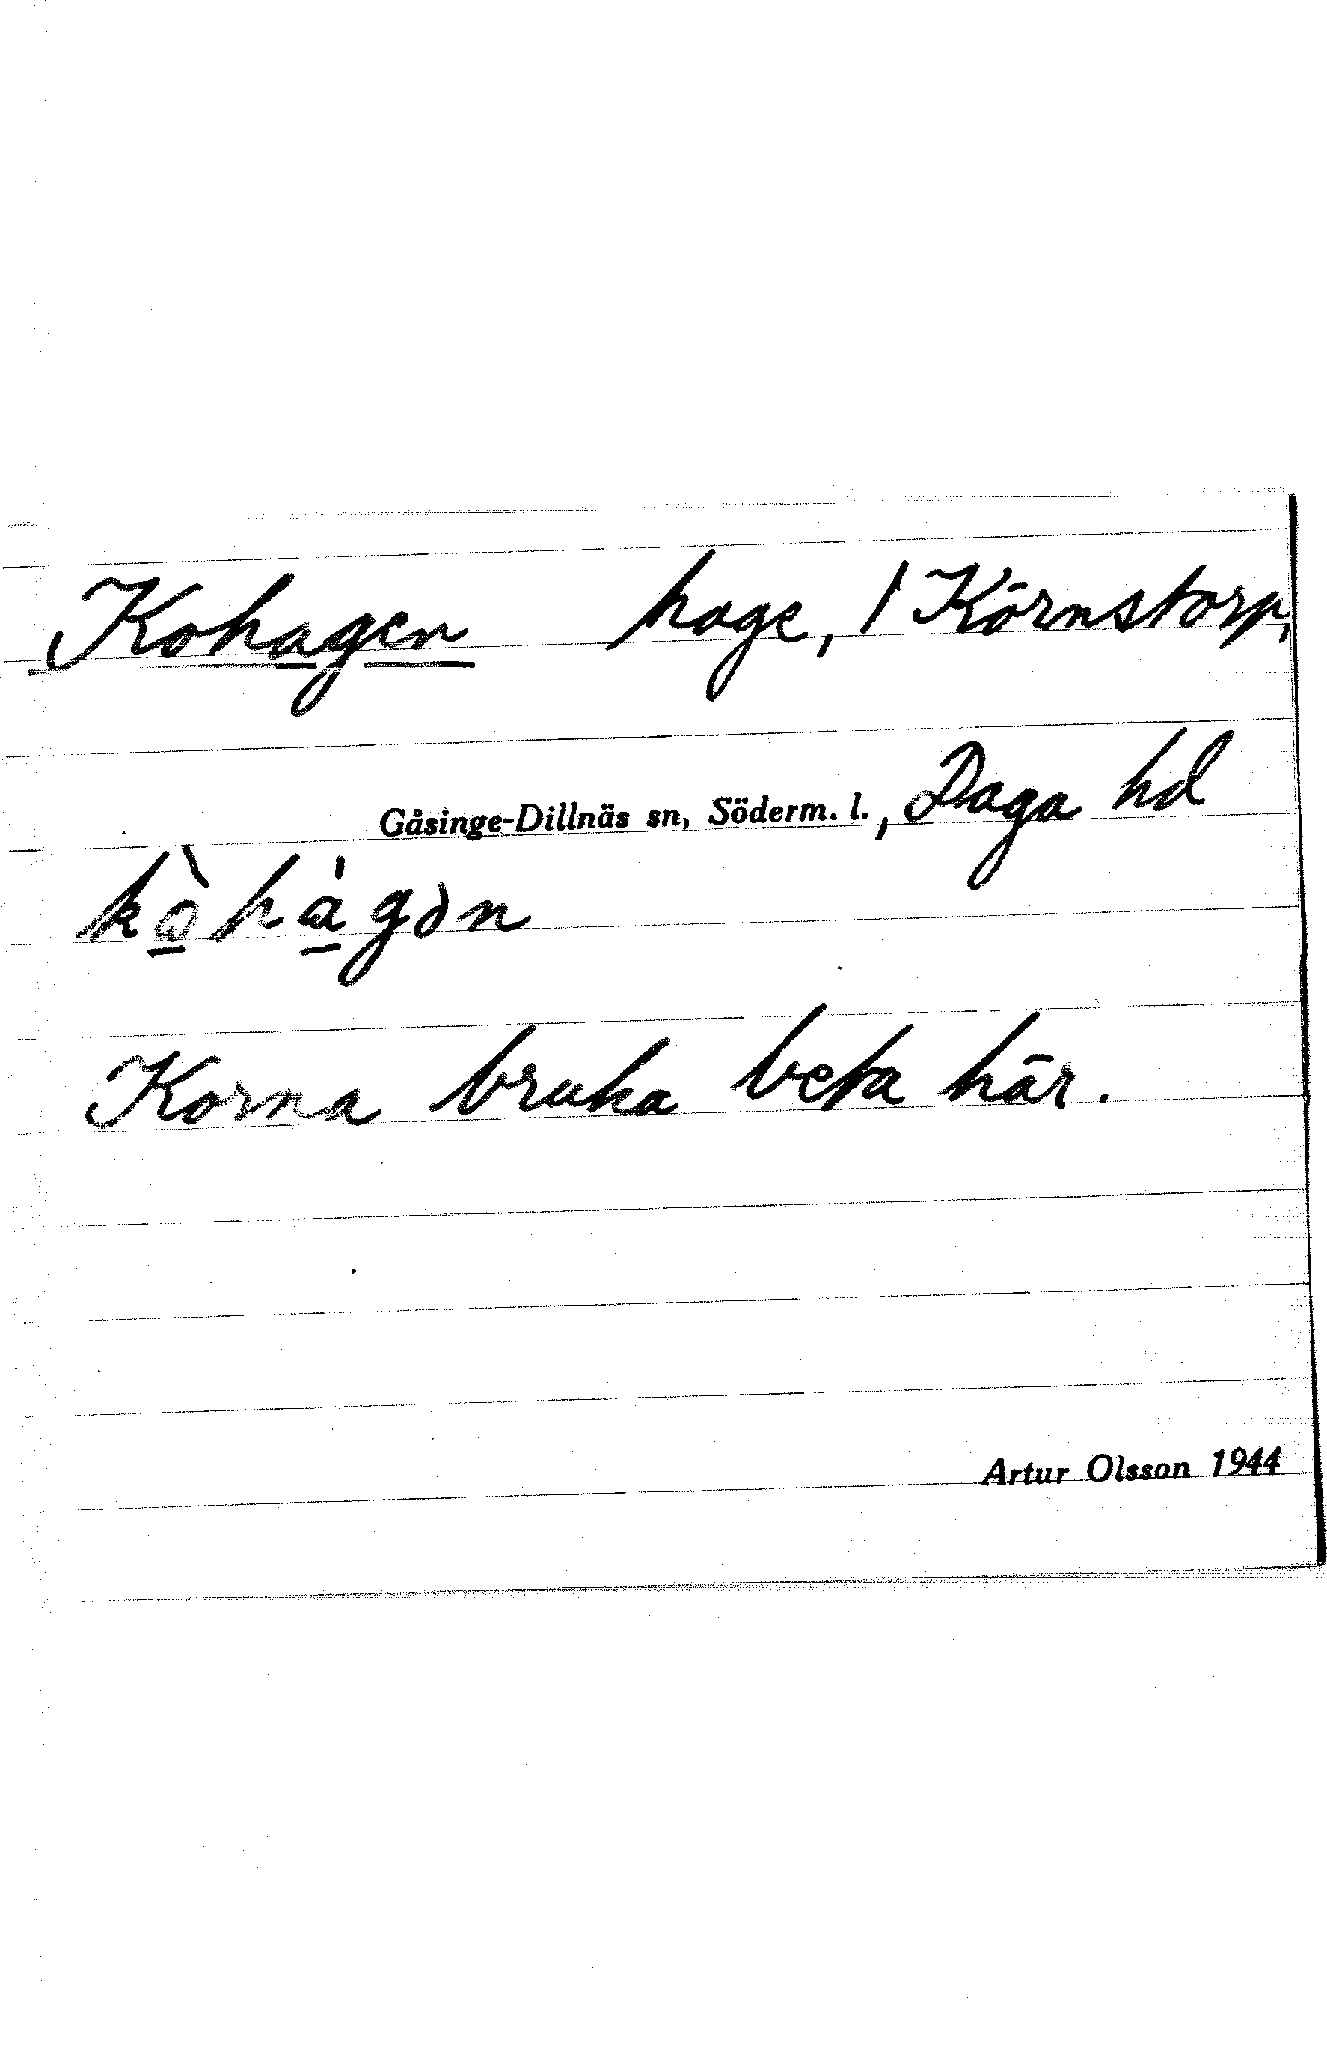 Kohagen hage, 1 Körnstorp,
Gåsinge-Dillnäs sn, Söderm. l., Daga hd
Korna bruka beta här.
Artur Olsson 1944